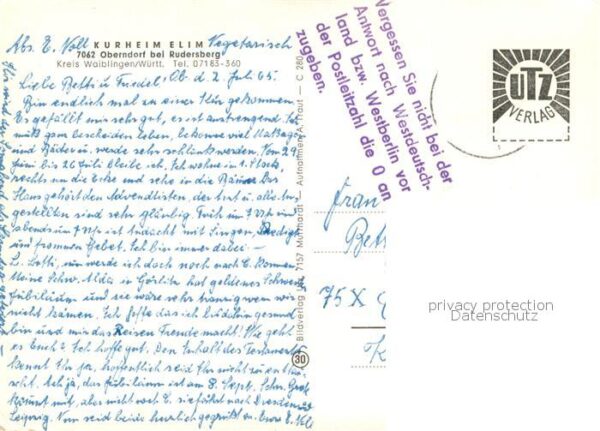 Abs. E. Noll KURHEIM ELIM Vegetarisch
7062 Oberndorf bei Rudersberg
Kreis Waiblingen/Württ. Tel. 07183-360
Liebe Betti u. Friedel! Ob d. 2. Juli 65.
Bin endlich mal zu einer Kur gekommen.
Es gefällt mir sehr gut, es ist anstrengend. Ich
muß ganz bescheiden leben, bekomme viel Massagen
und Bäder u. werde sehr schlank werden. Vom 29
Juni bis 26 Juli bleibe ich. Ich wohne im 1. Stock,
rechts um die Ecke und sehe in die Bäume. Das
Haus gehört den Adventisten, der Arzt u. alle An-
gestellten sind sehr gläubig. Früh um 7 Uhr und
abends um 7 Uhr ist Andacht mit Singen, Predigt
und frommen Gebet. Ich bin immer dabei.
L. Betti, nun werde ich doch noch nach C. kommen.
Meine Schw. Alda in Görlitz hat goldenes Schwest.
Jubiläum und sie wäre sehr traurig wenn wir
nicht kämen. Ich hoffe das ich bis dahin gesund
bin und mir das Reisen Freude macht! Wie geht
es Euch? Ich hoffe gut. Den Inhalt des Testaments
kennt Ihr ja, hoffentlich seid Ihr nicht zu enttäu-
scht. Ach ja, das Jubiläum ist am 8. Sept. Schw. Grete
kommt mit, aber nicht nach C. sie fährt nach Dresden u.
Leipzig. Nun seid beide herzlich gegrüßt v. Eurer E. Noll
Bildverlag 7157 Murrhardt - Aufnahme A. Traut - C 280
30
Vergessen Sie nicht bei der
Antwort nach Westdeutsch-
land bzw. Westberlin vor
der Postleitzahl die 0 an
zugeben.
UTZ
VERLAG
Frau
Bet
75X
privacy protection
Datenschutz